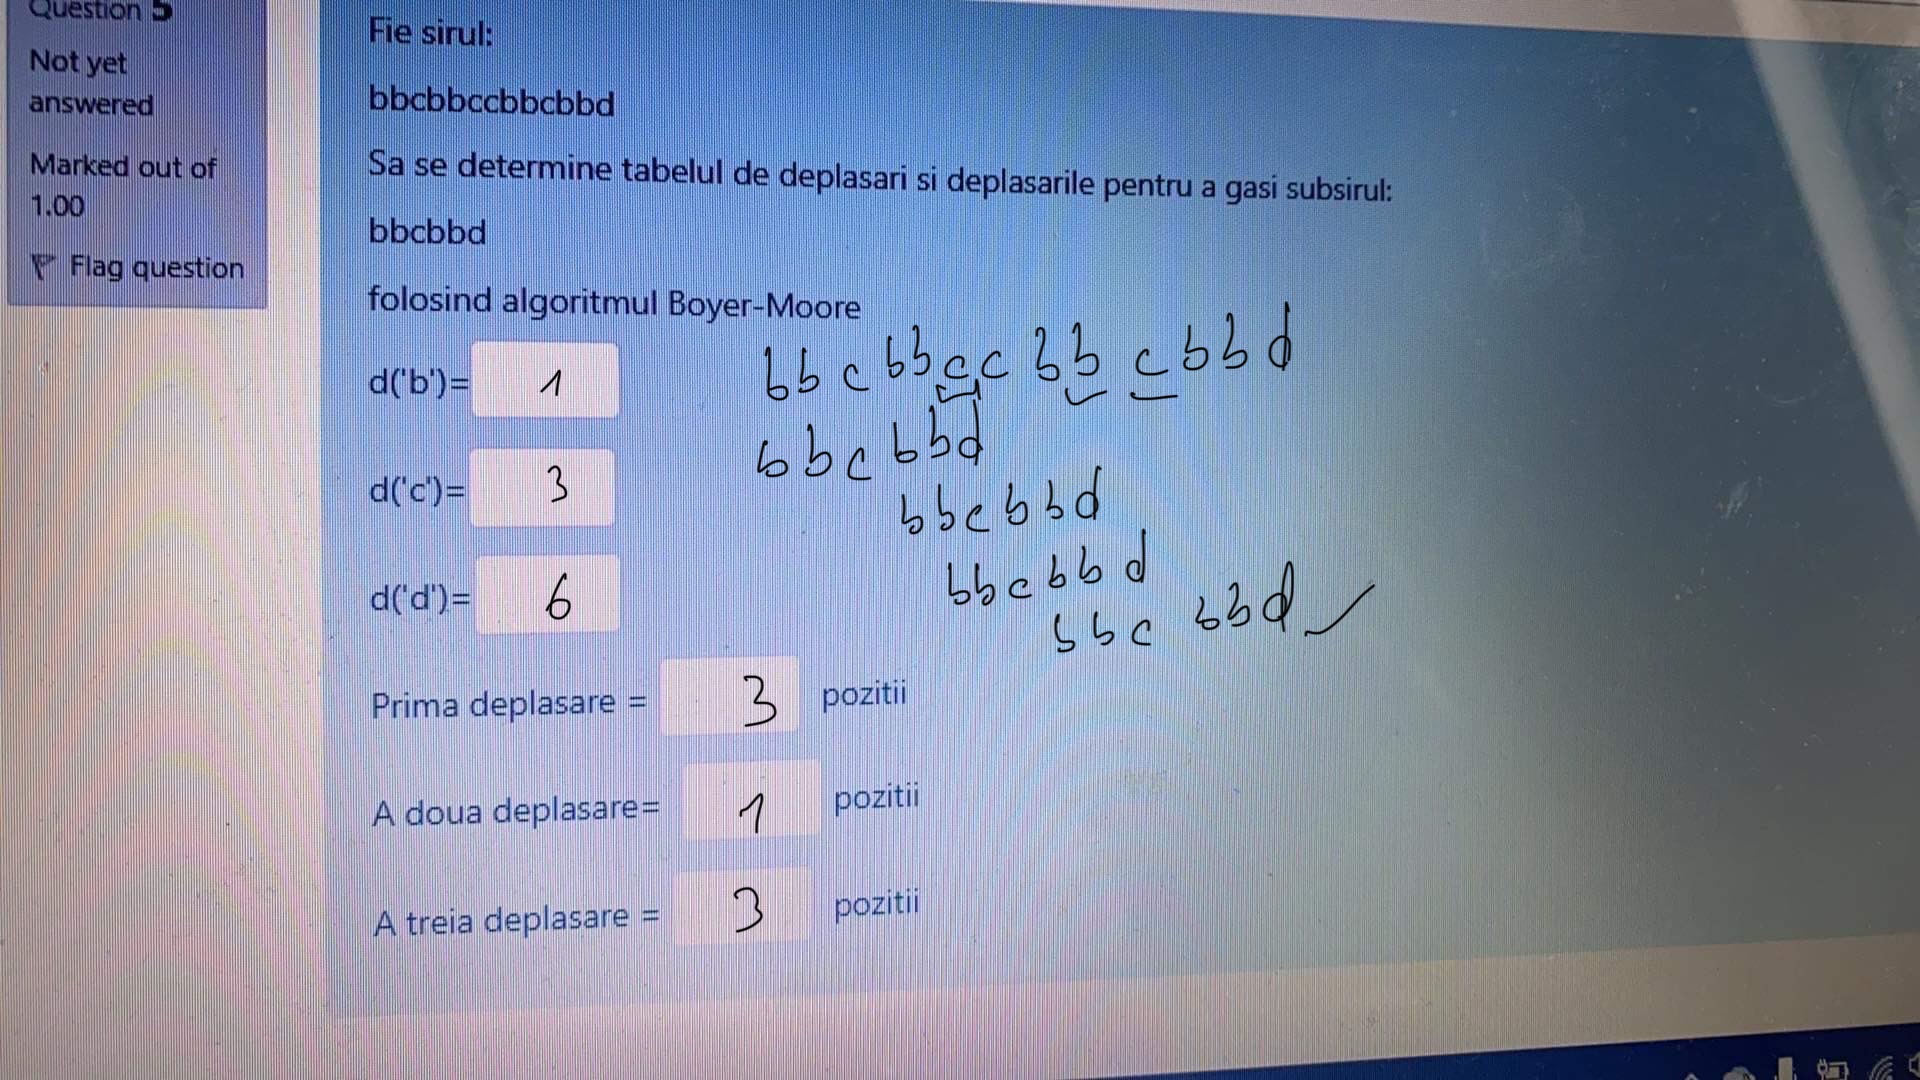 Question 5
Not yet
answered
Marked out of
1.00
Flag question
Fie sirul:
bbcbbccbbcbbd
Sa se determine tabelul de deplasari si deplasarile pentru a gasi subsirul:
bbcbbd
folosind algoritmul Boyer-Moore
d('b')= 1
d('c')= 3
d('d')= 6
bbcbbccbbcbbd
bbcbbd
bbcbbd
bbcbbd
bbcbbd
Prima deplasare = 3 pozitii
A doua deplasare= 1 pozitii
A treia deplasare = 3 pozitii